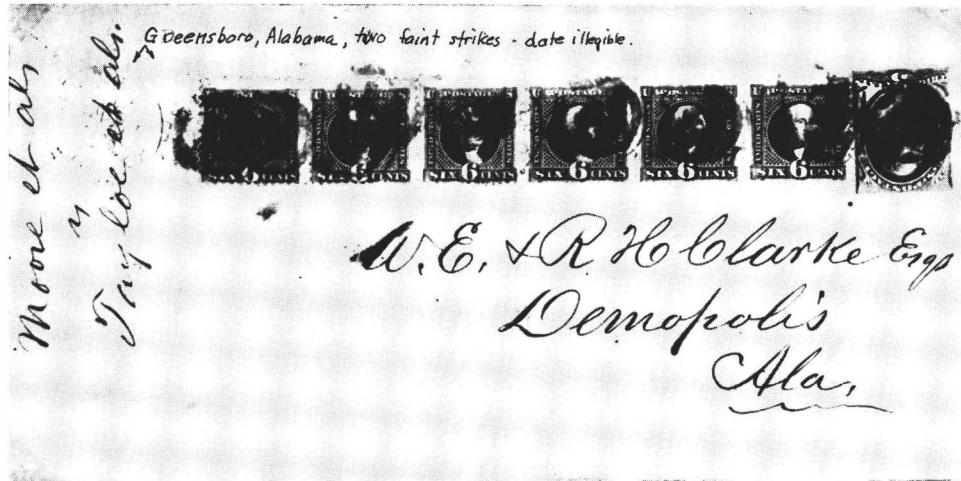 Greensboro, Alabama, two faint strikes - date illegible.
Moore et als
vs
Tayloe et als.
SIX 6 CENTS
SIX 6 CENTS
SIX 6 CENTS
SIX 6 CENTS
SIX 6 CENTS
SIX 6 CENTS
W. E. & R. H Clarke Esqs
Demopolis
Ala,